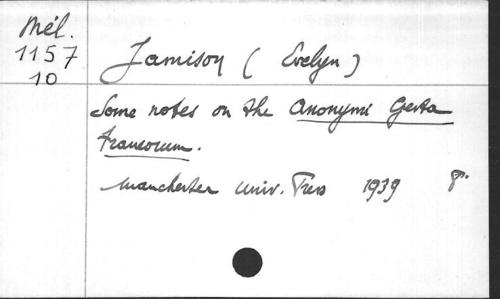 Mél.
1157
10
Jamison (Evelyn)
Some notes on the Anonymi Gesta
Francorum.
Manchester Univ. Press 1939 8°